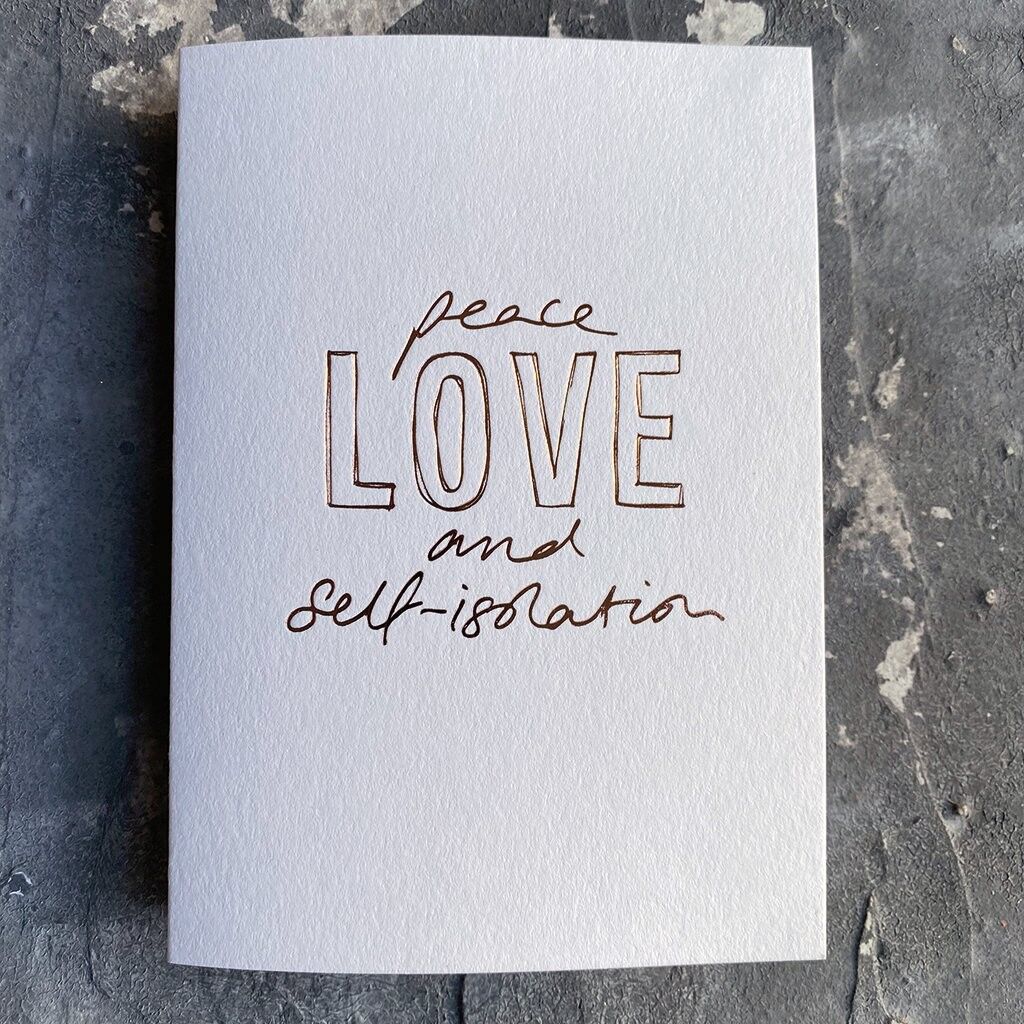 peace
LOVE
and
self-isolation